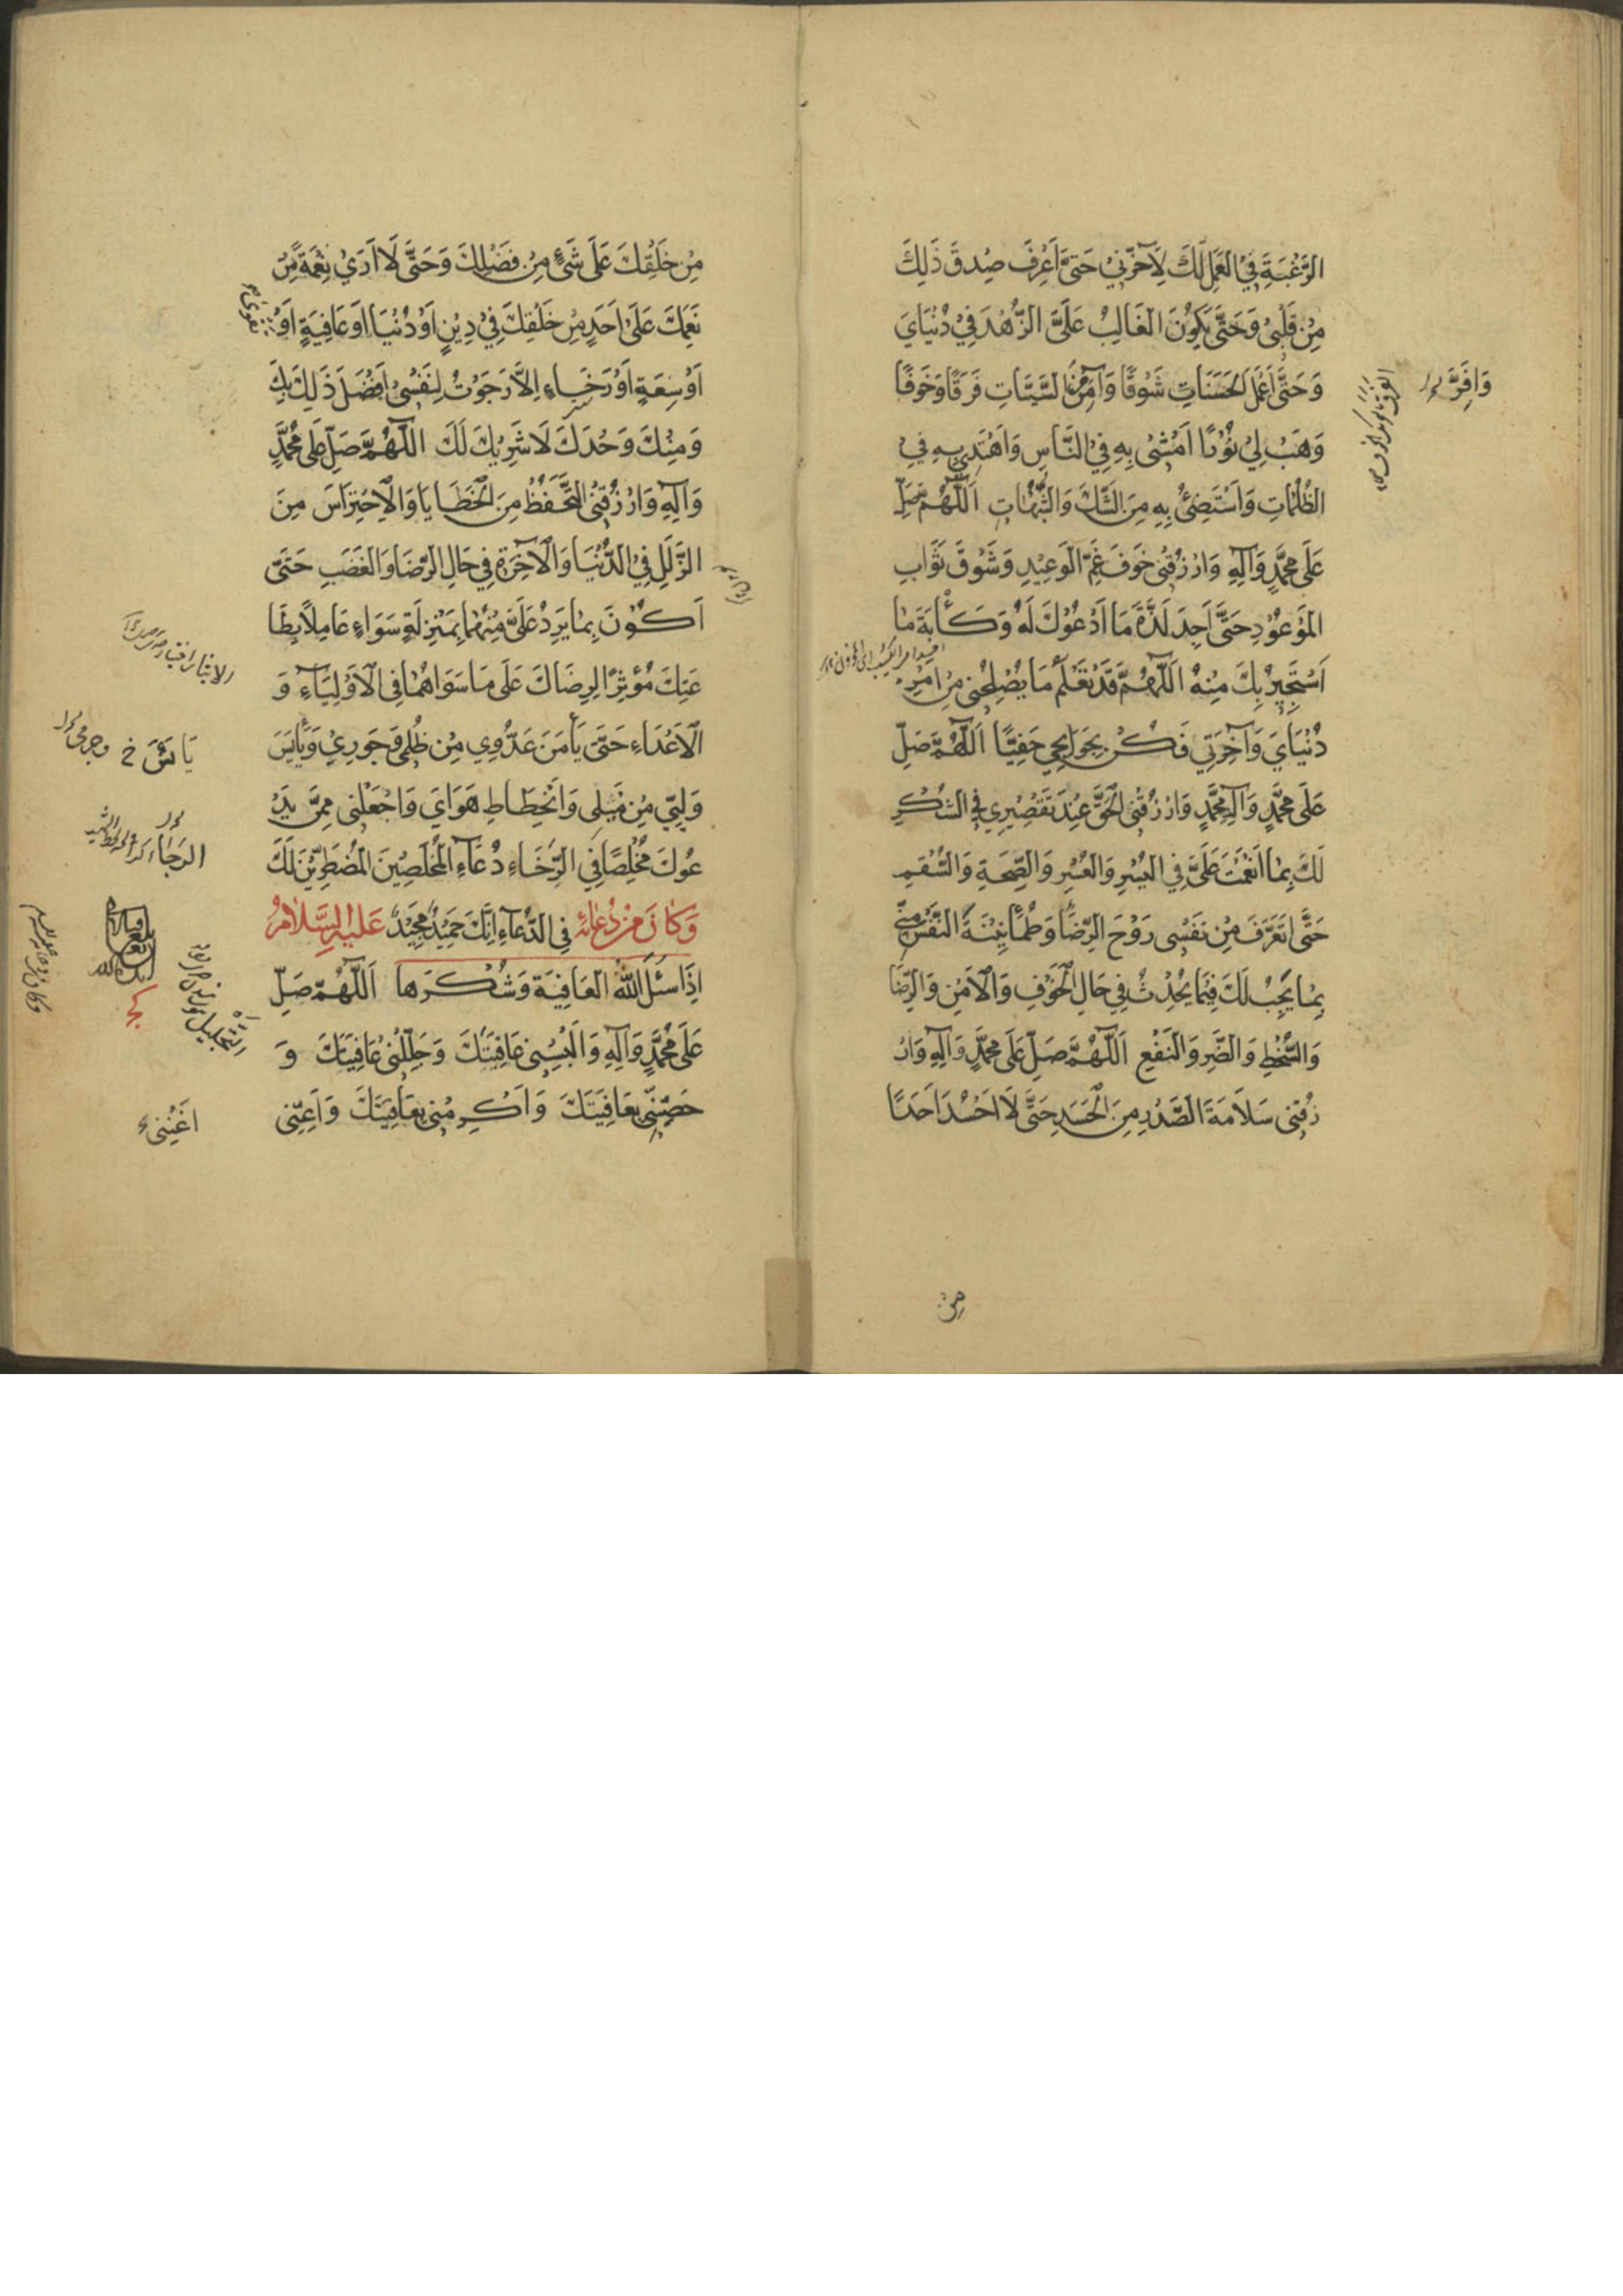 الرَّغْبَةَ فِي الْعَمَلِ لَكَ لِآخِرَتِي حَتَّى أَعْرِفَ صِدْقَ ذَلِكَ
مِنْ قَلْبِي وَحَتَّى يَكُونَ الْغَالِبُ عَلَيَّ الزُّهْدَ فِي دُنْيَايَ
وَحَتَّى أَعْمَلَ الْحَسَنَاتِ شَوْقًا وَآمَنَ مِنَ السَّيِّئَاتِ فَرَقًا وَخَوْفًا
وَافِرَّ
وَهَبْ لِي نُورًا أَمْشِي بِهِ فِي النَّاسِ وَأَهْتَدِي بِهِ فِي
الظُّلُمَاتِ وَأَسْتَضِيءُ بِهِ مِنَ الشَّكِّ وَالشُّبُهَاتِ اَللَّهُمَّ صَلِّ
عَلَى مُحَمَّدٍ وَآلِهِ وَارْزُقْنِي خَوْفَ غَمِّ الْوَعِيدِ وَشَوْقَ ثَوَابِ
الْمَوْعُودِ حَتَّى أَجِدَ لَذَّةَ مَا أَدْعُوكَ لَهُ وَكَأْبَةَ مَا
أَسْتَجِيرُ بِكَ مِنْهُ اَللَّهُمَّ قَدْ تَعْلَمُ مَا يُصْلِحُنِي مِنْ أَمْرِ
دُنْيَايَ وَآخِرَتِي فَكُنْ بِحَوَائِجِي حَفِيًّا اَللَّهُمَّ صَلِّ
عَلَى مُحَمَّدٍ وَآلِ مُحَمَّدٍ وَارْزُقْنِي الْحَقَّ عِنْدَ تَقْصِيرِي فِي الشُّكْرِ
لَكَ بِمَا أَنْعَمْتَ عَلَيَّ فِي الْيُسْرِ وَالْعُسْرِ وَالصِّحَّةِ وَالسُّقْمِ
حَتَّى أَتَعَرَّفَ مِنْ نَفْسِي رَوْحَ الرِّضَا وَطُمَأْنِينَةَ النَّفْسِ مِنِّي
بِمَا يَجِبُ لَكَ فِيمَا يُحْدِثُ فِي حَالِ الْخَوْفِ وَالْأَمْنِ وَالرِّضَا
وَالسُّخْطِ وَالضَّرِّ وَالنَّفْعِ اَللَّهُمَّ صَلِّ عَلَى مُحَمَّدٍ وَآلِهِ وَارْ
زُقْنِي سَلَامَةَ الصَّدْرِ مِنَ الْحَسَدِ حَتَّى لَا أَحْسُدَ أَحَدًا
مِنْ
مِنْ خَلْقِكَ عَلَى شَيْءٍ مِنْ فَضْلِكَ وَحَتَّى لَا أَرَى نِعْمَةً مِنْ
نِعَمِكَ عَلَى أَحَدٍ مِنْ خَلْقِكَ فِي دِينٍ أَوْ دُنْيَا أَوْ عَافِيَةٍ أَوْ
تَقْوَى
أَوْ سِعَةٍ أَوْ رَخَاءٍ إِلَّا رَجَوْتُ لِنَفْسِي أَفْضَلَ ذَلِكَ بِكَ
وَمِنْكَ وَحْدَكَ لَا شَرِيكَ لَكَ اَللَّهُمَّ صَلِّ عَلَى مُحَمَّدٍ
وَآلِهِ وَارْزُقْنِي التَّحَفُّظَ مِنَ الْخَطَايَا وَالْاِحْتِرَاسَ مِنَ
الزَّلَلِ فِي الدُّنْيَا وَالْآخِرَةِ فِي حَالِ الرِّضَا وَالْغَضَبِ حَتَّى
أَكُونَ بِمَا يَرِدُ عَلَيَّ مِنْهُمَا بِمَنْزِلَةٍ سَوَاءٍ عَامِلًا بِطَا
عَتِكَ مُؤْثِرًا لِرِضَاكَ عَلَى مَا سِوَاهُمَا فِي الْأَوْلِيَاءِ وَ
الْأَعْدَاءِ حَتَّى يَأْمَنَ عَدُوِّي مِنْ ظُلْمِي وَجَوْرِي وَيَأْيَسَ
وَلِيِّي مِنْ مَيْلِي وَانْحِطَاطِ هَوَايَ وَاجْعَلْنِي مِمَّنْ يَدْ
عُوكَ مُخْلِصًا فِي الرَّخَاءِ دُعَاءَ الْمُخْلِصِينَ الْمُضْطَرِّينَ لَكَ
وَكَانَ مِنْ دُعَائِهِ فِي الدُّعَاءِ إِنَّكَ حَمِيدٌ مَجِيدٌ عَلَيْهِ السَّلَامُ
إِذَا سَئَلَ اللَّهَ الْعَافِيَةَ وَشُكْرَهَا اَللَّهُمَّ صَلِّ
عَلَى مُحَمَّدٍ وَآلِهِ وَأَلْبِسْنِي عَافِيَتَكَ وَجَلِّلْنِي عَافِيَتَكَ وَ
حَصِّنِّي بِعَافِيَتِكَ وَأَكْرِمْنِي بِعَافِيَتِكَ وَأَعِنِّي
أَغْنِنِي